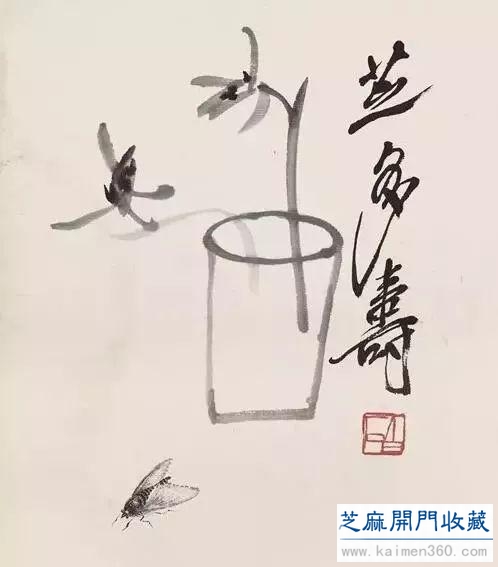 芝多壽
芝麻開門收藏
www.kaimen360.com